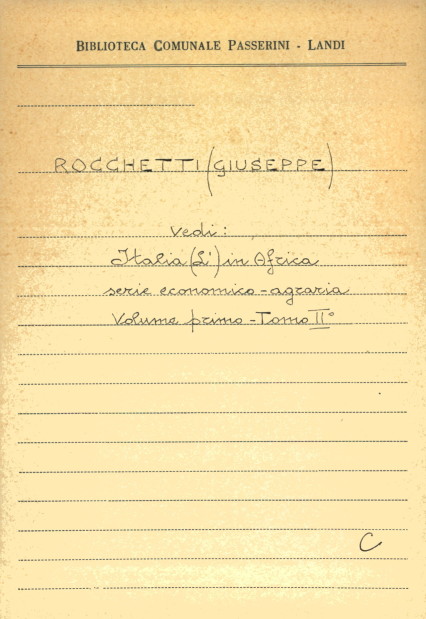 BIBLIOTECA COMUNALE PASSERINI - LANDI
ROCCHETTI (GIUSEPPE)
vedi:
Italia (L') in Africa
serie economico-agraria
Volume primo - Tomo II°
C